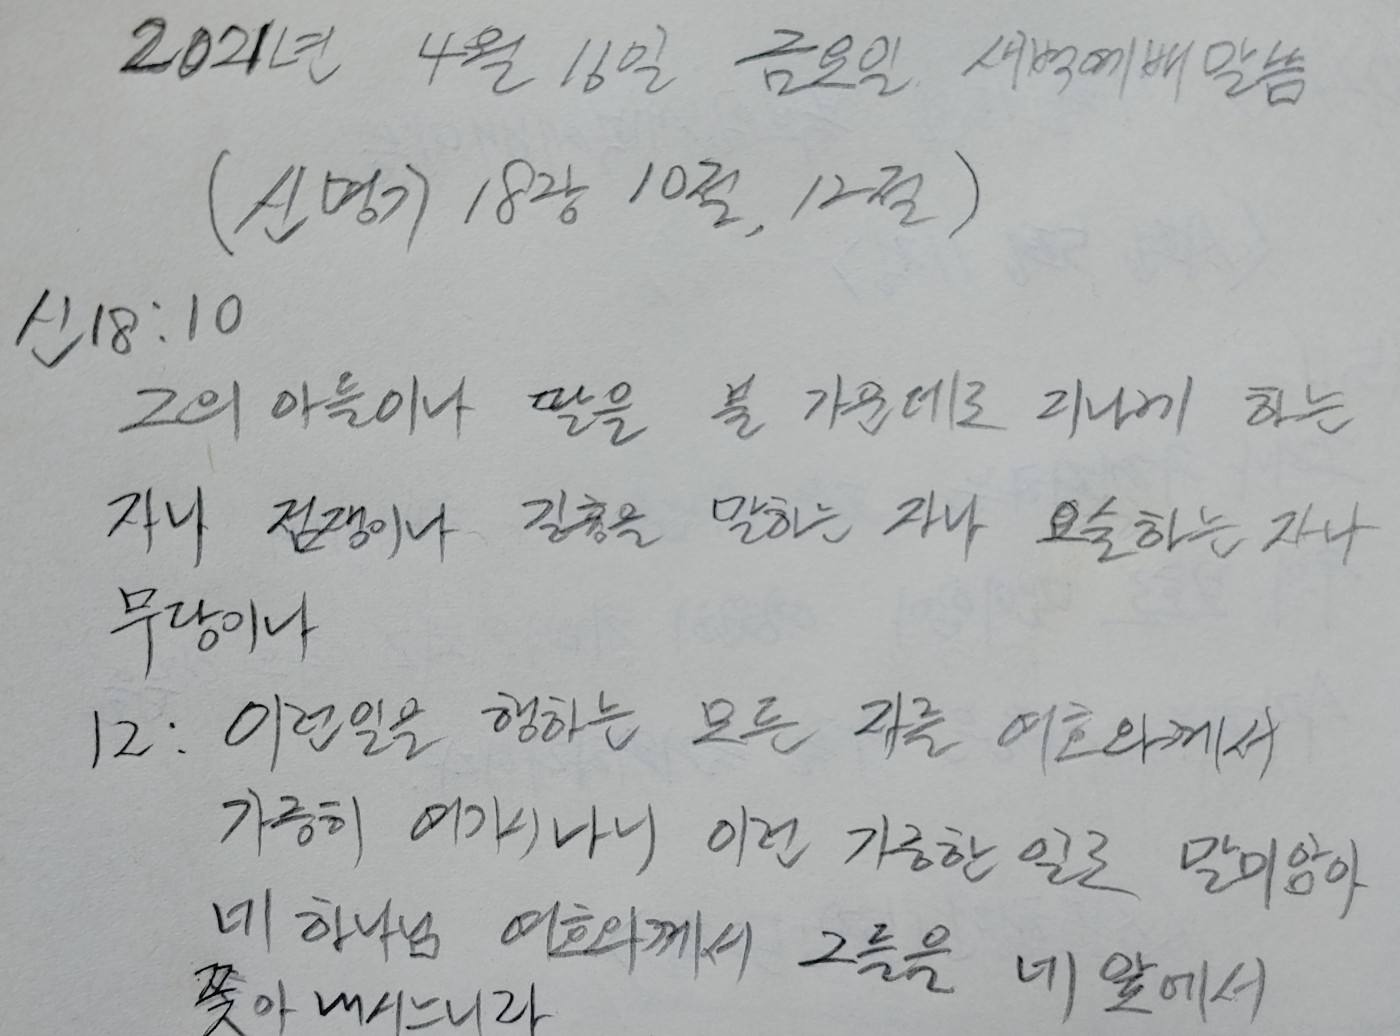 2021년 4월 16일 금요일 새벽예배 말씀
(신명기 18장 10절, 12절)
신18:10
그의 아들이나 딸을 불 가운데로 지나게 하는
자나 점쟁이나 길흉을 말하는 자나 요술하는 자나
무당이나
12: 이런일을 행하는 모든 자를 여호와께서
가증히 여기시나니 이런 가증한 일로 말미암아
네 하나님 여호와께서 그들을 네 앞에서
쫓아 내시느니라